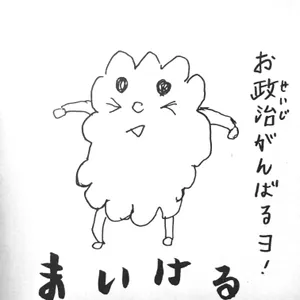 お政治がんばるヨ!
せいじ
まいける